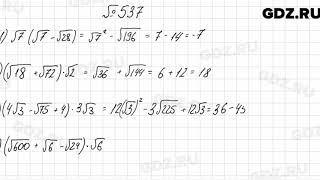 GDZ.RU
№537
1) √7 (√7 - √28) = √7² - √196 = 7 - 14 = -7
)(√18 + √72)·√2 = √36 + √144 = 6 + 12 = 18
)(4√3 - √75 + 4)·3√3 = 12(√3)² - 3√225 + 12√3 = 36 - 45
)(√600 + √6 - √24)·√6
GDZ.RU